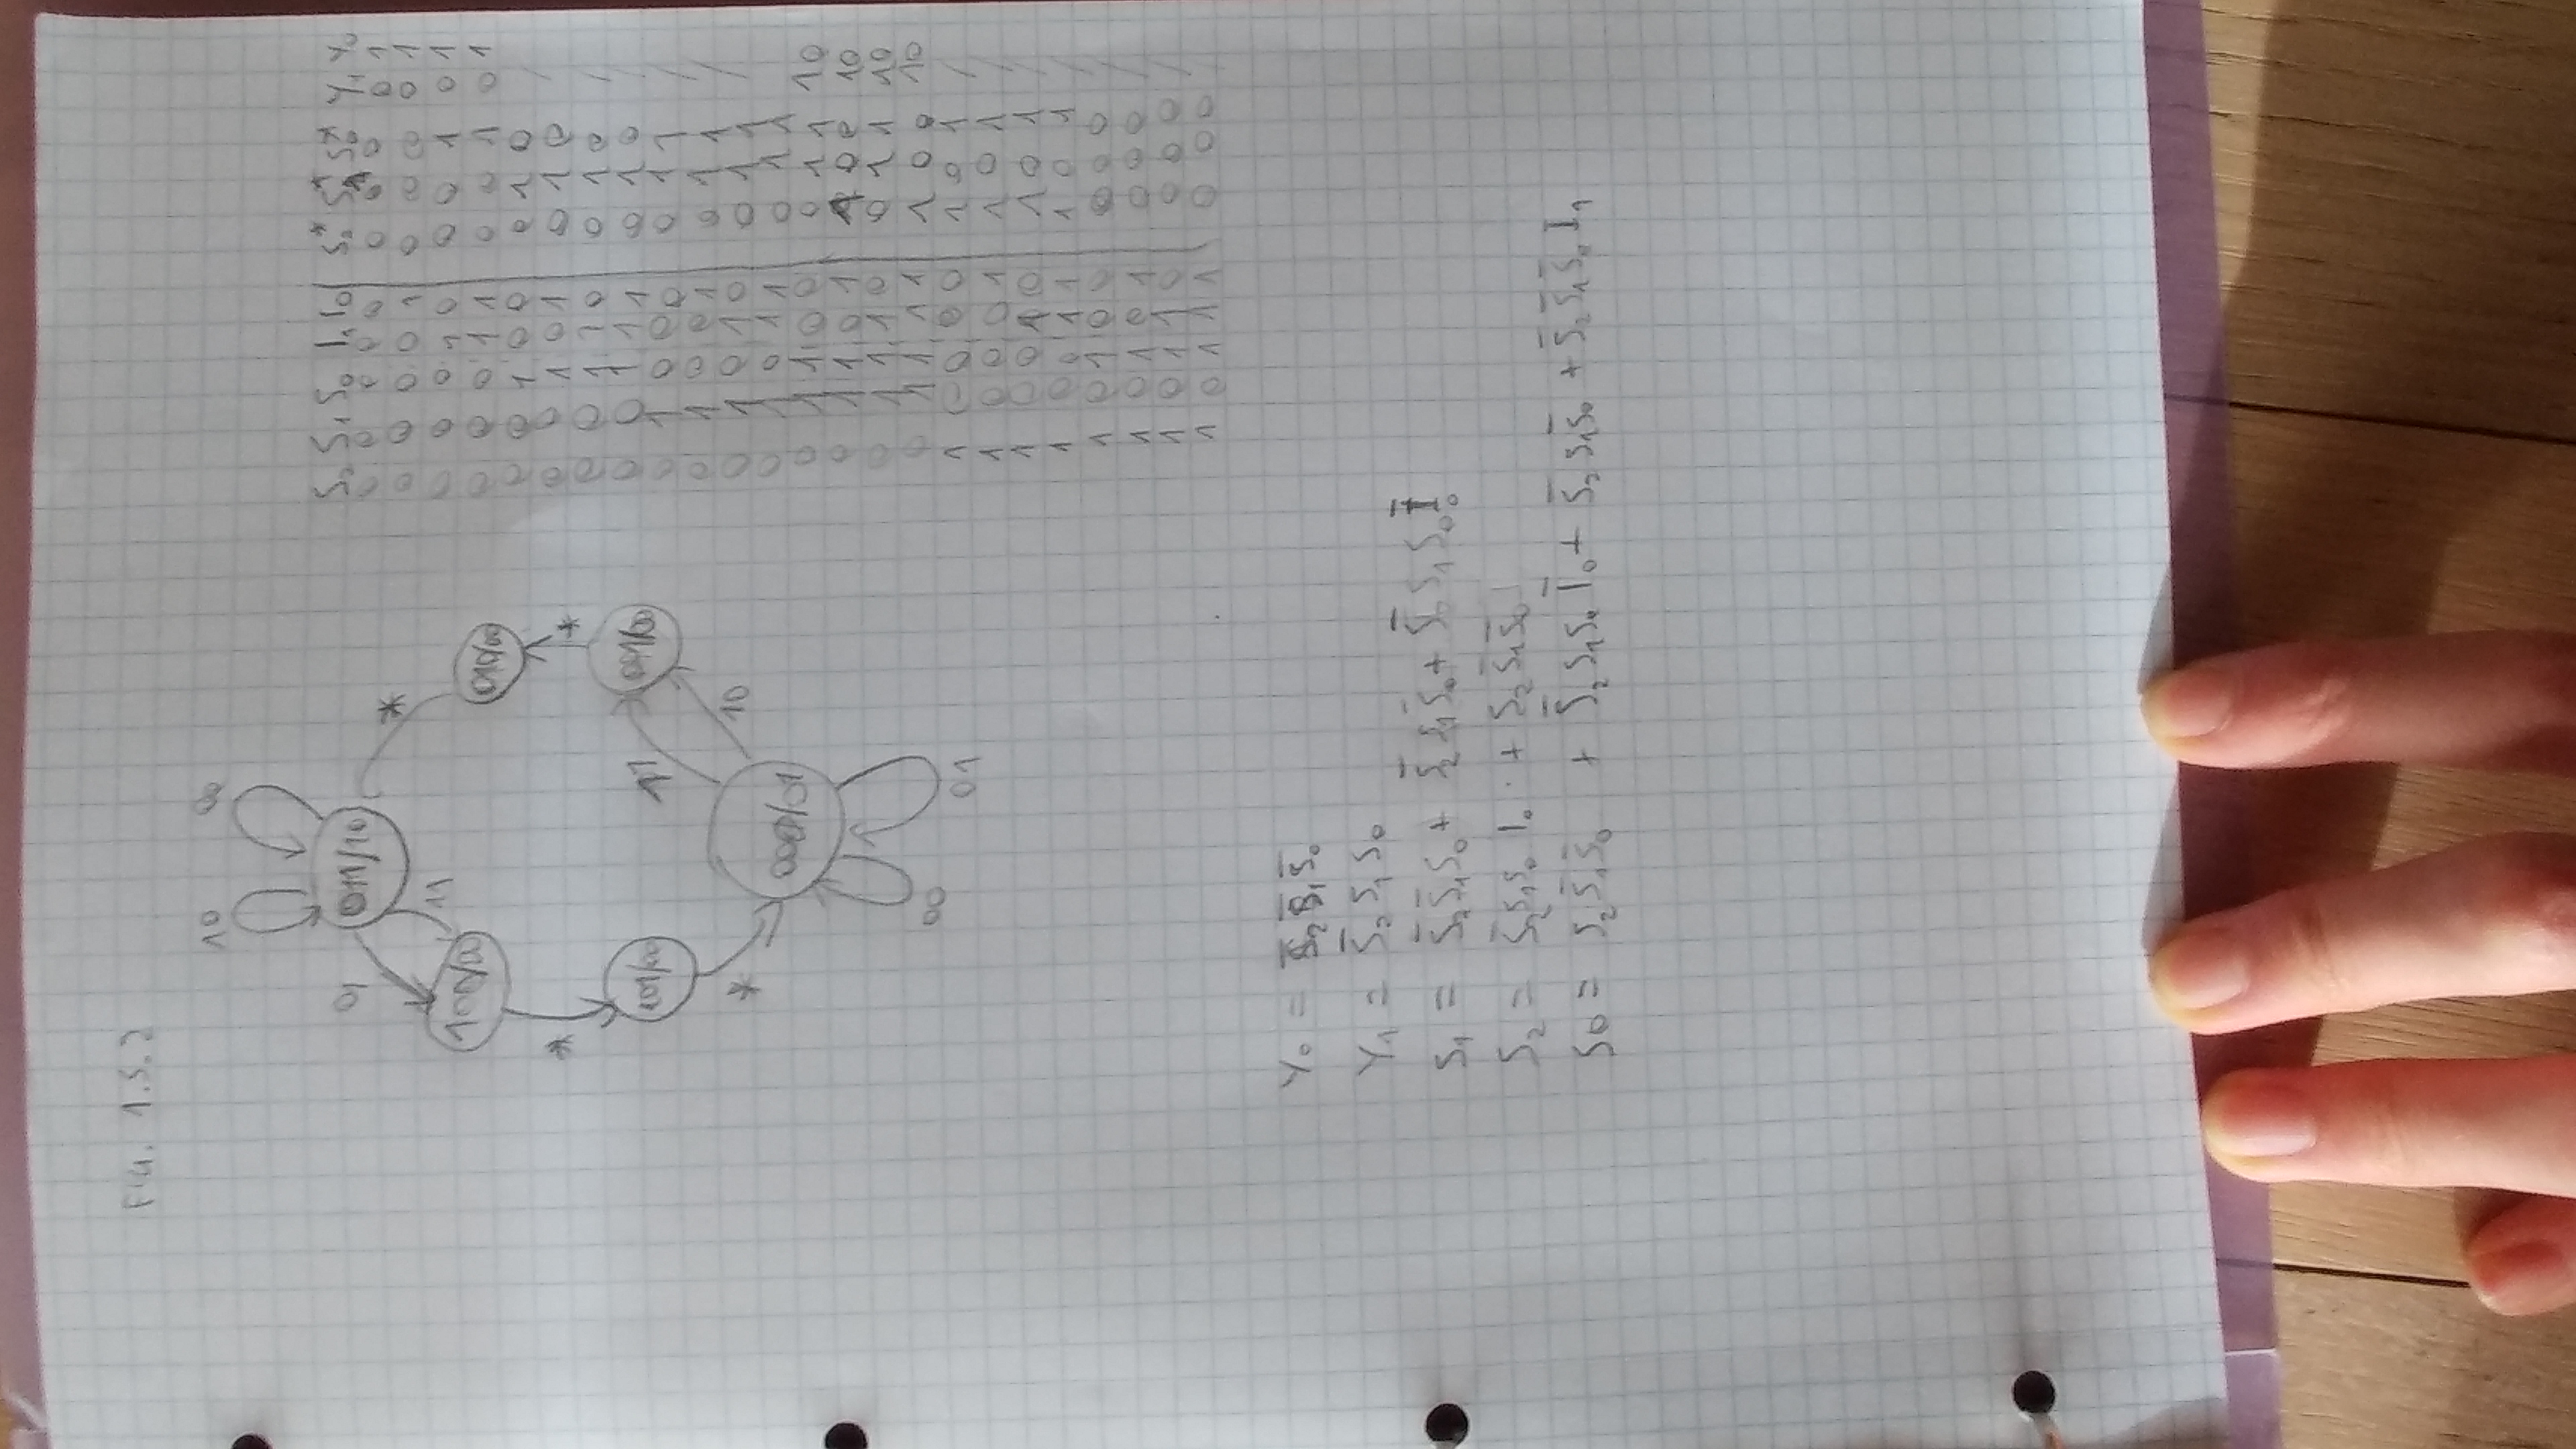 Fig. 1.5.2
10 00
011/10
01
11
*
100/00
010/00
*
*
101/00
001/00
11
10
*
000/01
00
01
S₂ S₁ S₀ I₁ I₀ S₂* S₁* S₀* Y₁ Y₀
0 0 0 0 0 0 0 0 0 1
0 0 0 0 1 0 0 0 0 1
0 0 0 1 0 0 0 1 0 1
0 0 0 1 1 0 0 1 0 1
0 0 1 0 0 0 1 0 /
0 0 1 0 1 0 1 0 /
0 0 1 1 0 0 1 0 /
0 0 1 1 1 0 1 0 /
0 1 0 0 0 0 1 1 /
0 1 0 0 1 0 1 1 /
0 1 0 1 0 0 1 1 /
0 1 0 1 1 0 1 1 /
0 1 1 0 0 0 1 1 1 0
0 1 1 0 1 1 0 0 1 0
0 1 1 1 0 0 1 1 1 0
0 1 1 1 1 1 0 0 1 0
1 0 0 0 0 1 0 1 /
1 0 0 0 1 1 0 1 /
1 0 0 1 0 1 0 1 /
1 0 0 1 1 1 0 1 /
1 0 1 0 0 0 0 0 /
1 0 1 0 1 0 0 0 /
1 0 1 1 0 0 0 0 /
1 0 1 1 1 0 0 0
Y₀ = S̅₂ S̅₁ S̅₀
Y₁ = S̅₂ S₁ S₀
S₁ = S̅₂ S̅₁ S₀ + S̅₂ S₁ S̅₀ + S̅₀ S₁ S₀ I̅₀
S₂ = S̅₂ S₁ S₀ I₀ + S₂ S̅₁ S̅₀
S0 = S₂ S̅₁ S̅₀ + S̅₂ S₁ S₀ I̅₀ + S̅₂ S₁ S̅₀ + S̅₂ S̅₁ S̅₀ I₁